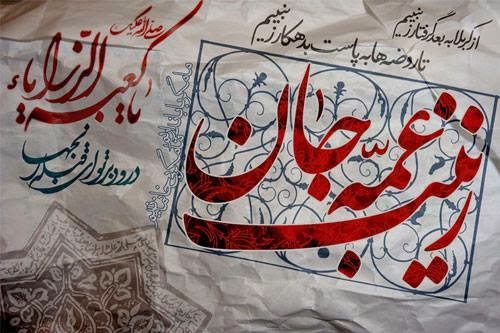 از کربلا به بعد گرفتار زینبیم
تا روضه ها به پاست بدهکار زینبیم
عمه جان
زینب
صلی الله علیک
یا کعبة الرزایا
درود بر تو ای قبله رنجها